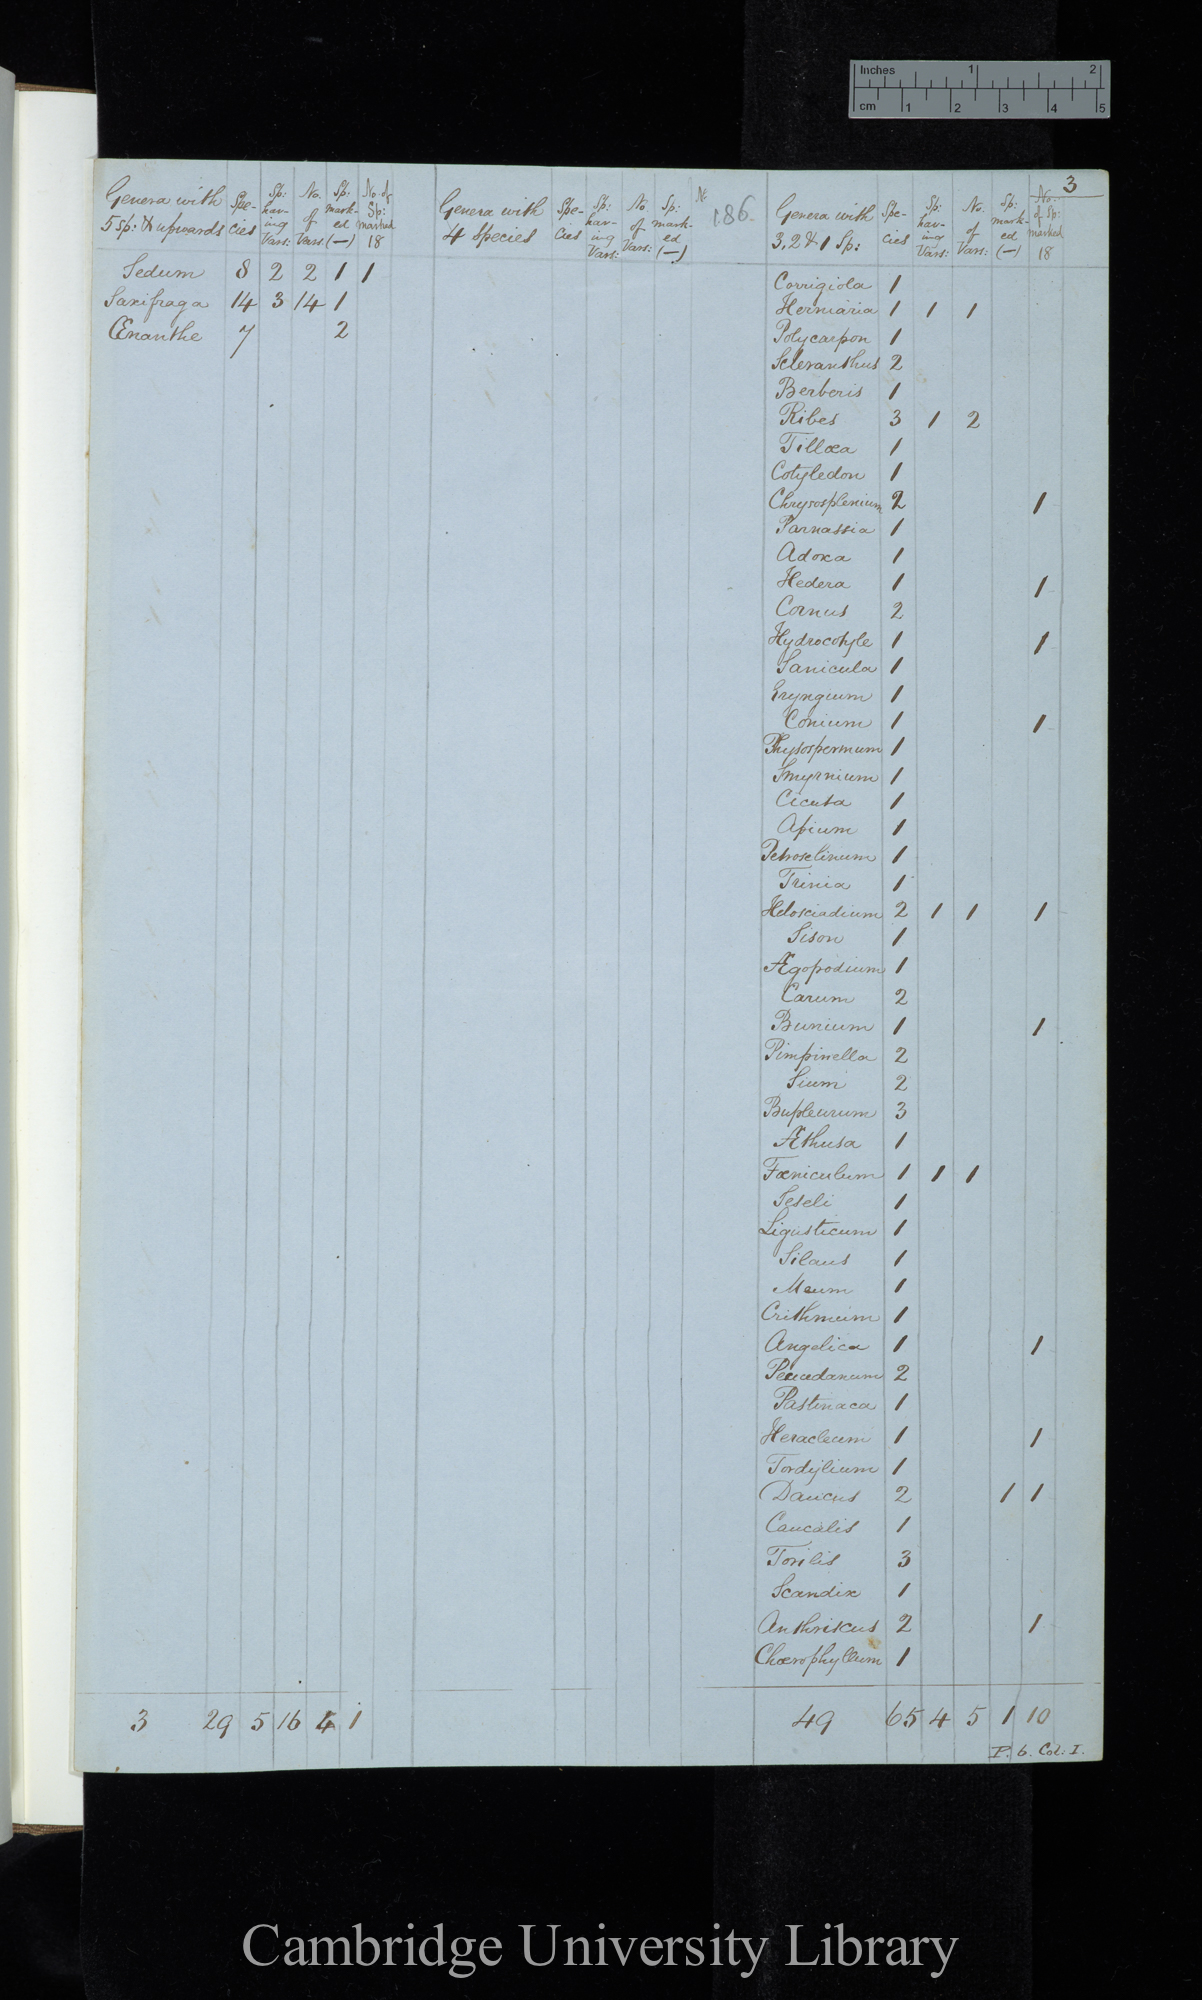 Inches 1 2
cm 1 2 3 4 5
3
186.
Genera with 5 sp: & upwards | Spe-cies | Sp: hav-ing Vars: | No. of Vars: | Sp: mark-ed (—) | No. of Sp: marked 18
Sedum 8 2 2 1 1
Saxifraga 14 3 14 1
Œnanthe 7 2
3 29 5 16 4 1
Genera with 4 Species | Spe-cies | Sp: hav-ing Vars: | No of Vars: | Sp: mark-ed (—) | No
Genera with 3, 2 & 1 Sp: | Spe-cies | Sp: hav-ing Vars: | No. of Vars: | Sp: mark-ed (—) | No. of Sp: marked 18
Corrigiola 1
Herniaria 1 1 1
Polycarpon 1
Scleranthus 2
Berberis 1
Ribes 3 1 2
Tillæa 1
Cotyledon 1
Chrysosplenium 2 1
Parnassia 1
Adoxa 1
Hedera 1 1
Cornus 2
Hydrocotyle 1 1
Sanicula 1
Eryngium 1
Conium 1 1
Physospermum 1
Smyrnium 1
Cicuta 1
Apium 1
Petroselinum 1
Trinia 1
Helosciadium 2 1 1 1
Sison 1
Ægopodium 1
Carum 2
Bunium 1 1
Pimpinella 2
Sium 2
Bupleurum 3
Æthusa 1
Fœniculum 1 1 1
Seseli 1
Ligusticum 1
Silaus 1
Meum 1
Crithmum 1
Angelica 1 1
Peucedanum 2
Pastinaca 1
Heracleum 1 1
Tordylium 1
Daucus 2 1 1
Caucalis 1
Torilis 3
Scandix 1
Anthriscus 2 1
Chærophyllum 1
49 65 4 5 1 10
P. 6. Col: I.
Cambridge University Library